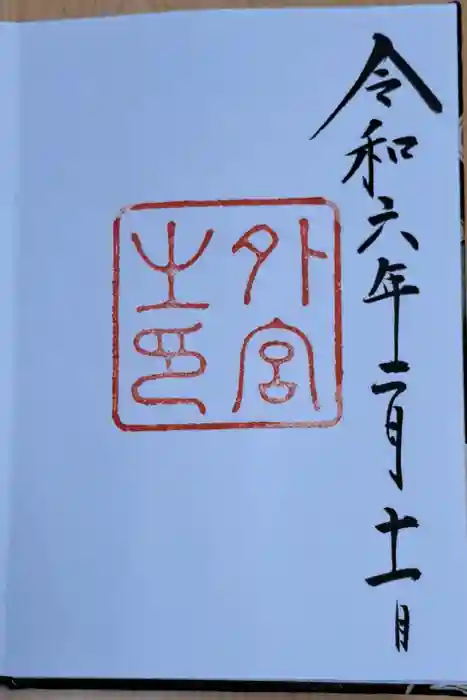 令和六年二月十一日
外宮
之印